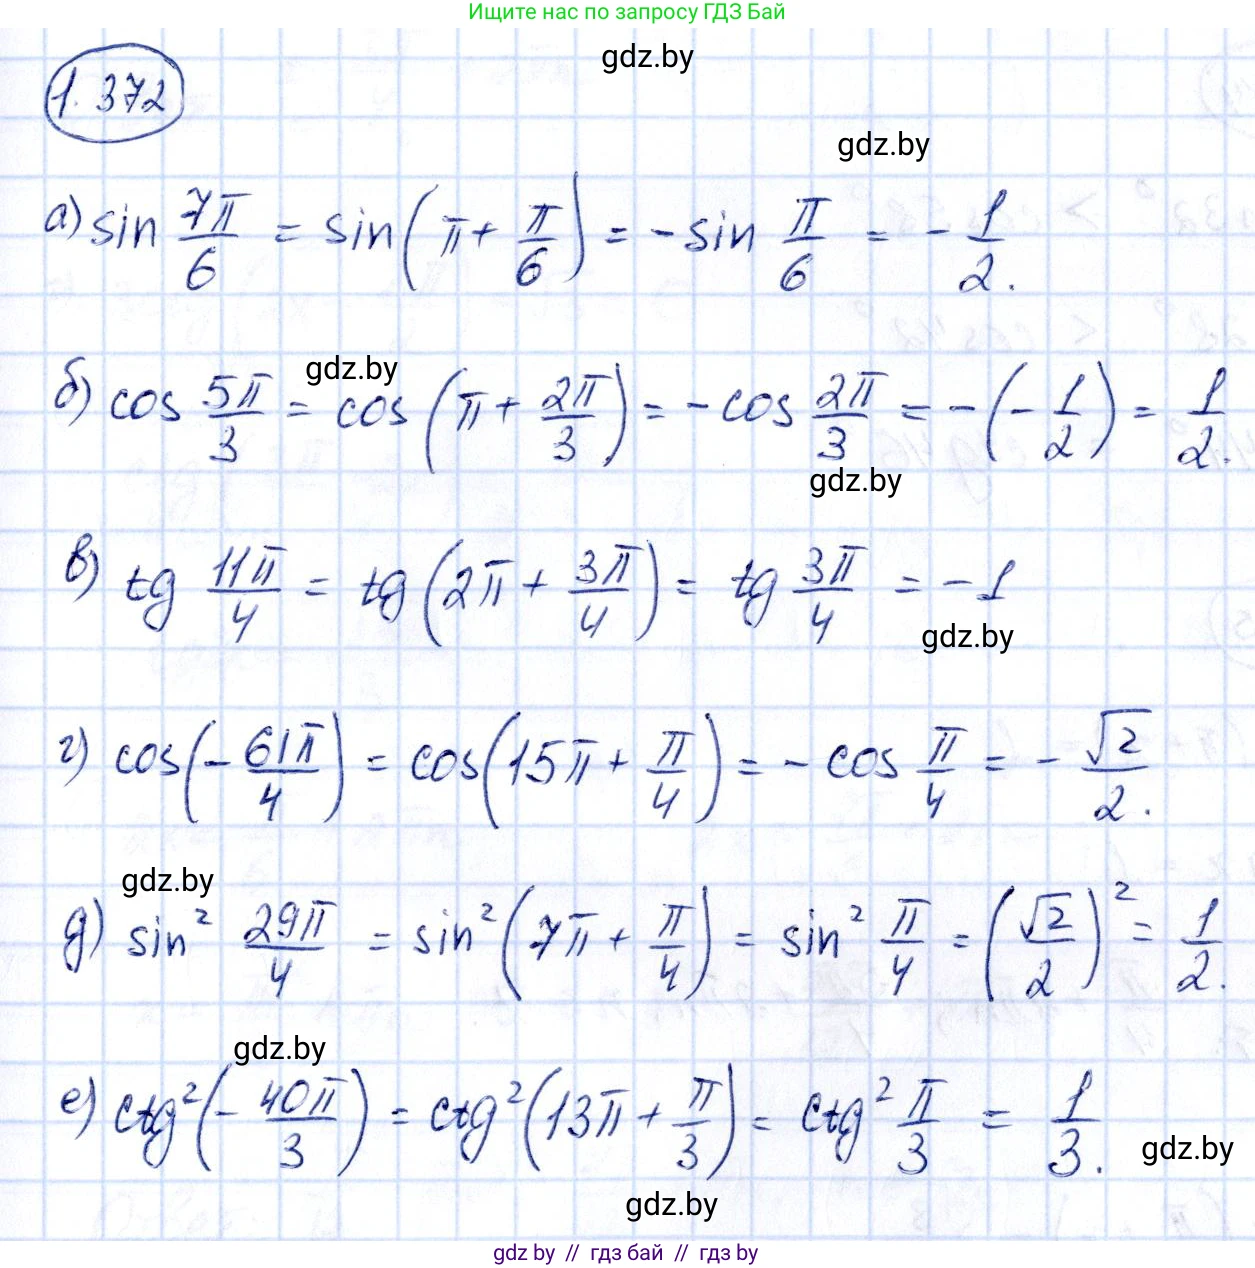 Ищите нас по запросу ГДЗ Бай
gdz.by
1.372
gdz.by
а) sin 7π/6 = sin(π + π/6) = -sin π/6 = -1/2.
gdz.by
б) cos 5π/3 = cos(π + 2π/3) = -cos 2π/3 = -(-1/2) = 1/2.
gdz.by
в) tg 11π/4 = tg(2π + 3π/4) = tg 3π/4 = -1
gdz.by
г) cos(-61π/4) = cos(15π + π/4) = -cos π/4 = -√2/2.
gdz.by
д) sin² 29π/4 = sin²(7π + π/4) = sin² π/4 = (√2/2)² = 1/2.
gdz.by
е) ctg²(-40π/3) = ctg²(13π + π/3) = ctg² π/3 = 1/3.
gdz.by
gdz.by
gdz by // гдз бай // гдз by